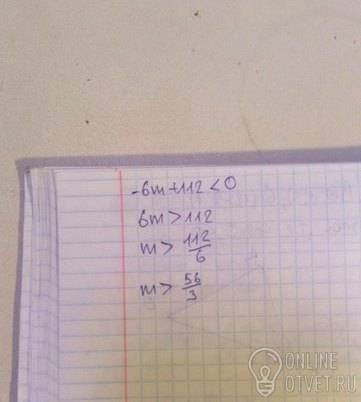 -6m+112<0
6m>112
m> 112/6
m> 56/3
ONLINE
OTVET.RU